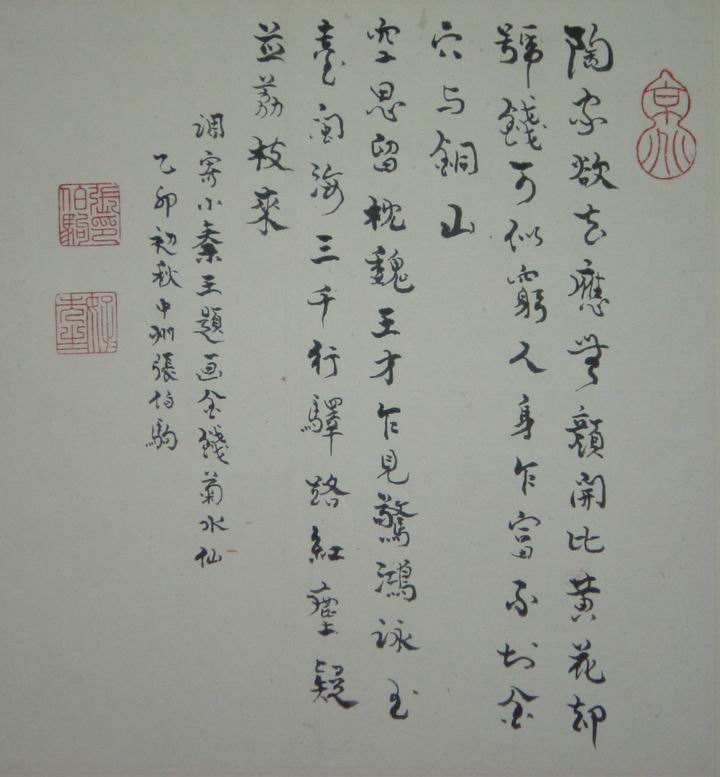 京兆
陶家欲去應無顏開比黃花却
號錢可似窮人身乍富不知金
穴与銅山
空思留枕魏王才乍見驚鴻詠玉
臺閩海三千行驛路紅塵疑
並荔枝來
調寄小秦王題画金錢菊水仙
乙卯初秋中州張伯駒
張伯駒印